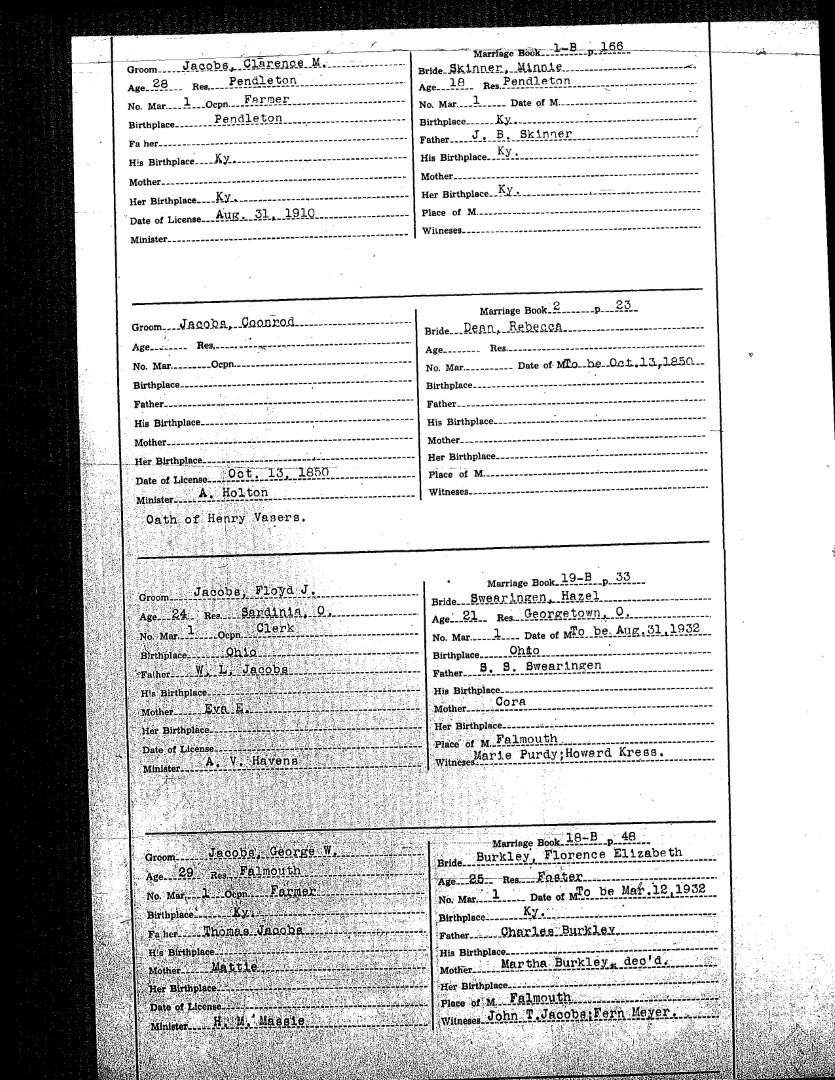 Marriage Book 1-B p 166
Groom Jacobs, Clarence M.
Age 28 Res. Pendleton
No. Mar. 1 Ocpn. Farmer
Birthplace Pendleton
Fa her
His Birthplace Ky.
Mother
Her Birthplace Ky.
Date of License Aug. 31, 1910
Minister
Bride Skinner, Minnie
Age 18 Res. Pendleton
No. Mar. 1 Date of M.
Birthplace Ky.
Father J. B. Skinner
His Birthplace Ky.
Mother
Her Birthplace Ky.
Place of M.
Witnesses
Marriage Book 2 p 23
Groom Jacobs, Coonrod
Age Res.
No. Mar. Ocpn.
Birthplace
Father
His Birthplace
Mother
Her Birthplace
Date of License Oct. 13, 1850
Minister A. Holton
Oath of Henry Vasers.
Bride Dean, Rebecca
Age Res.
No. Mar. Date of M. To be Oct.13,1850
Birthplace
Father
His Birthplace
Mother
Her Birthplace
Place of M.
Witneses
Marriage Book 19-B p 33
Groom Jacobs, Floyd J.
Age 24 Res. Sardinia, O.
No. Mar. 1 Ocpn. Clerk
Birthplace Ohio
Father W. L. Jacobs
His Birthplace
Mother Eva E.
Her Birthplace
Date of License
Minister A. V. Havens
Bride Swearingen, Hazel
Age 21 Res. Georgetown, O.
No. Mar. 1 Date of M. To be Aug.31,1932
Birthplace Ohio
Father S. S. Swearingen
His Birthplace
Mother Cora
Her Birthplace
Place of M. Falmouth
Witneses Marie Purdy;Howard Kress.
Marriage Book 18-B p 48
Groom Jacobs, George W.
Age 29 Res. Falmouth
No. Mar. 1 Ocpn. Farmer
Birthplace Ky.
Fa her Thomas Jacobs
His Birthplace
Mother Mattie
Her Birthplace
Date of License
Minister H. M. Massie
Bride Burkley, Florence Elizabeth
Age 25 Res. Foster
No. Mar. 1 Date of M. To be Mar.12,1932
Birthplace Ky.
Father Charles Burkley
His Birthplace
Mother Martha Burkley, dec'd.
Her Birthplace
Place of M. Falmouth
Witneses John T.Jacobs;Fern Meyer.